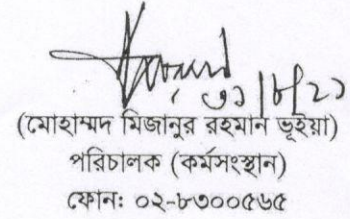 ৩১/৮/২১
(মোহাম্মদ মিজানুর রহমান ভূইয়া)
পরিচালক (কর্মসংস্থান)
ফোন: ০২-৮৩০০৫৬৫